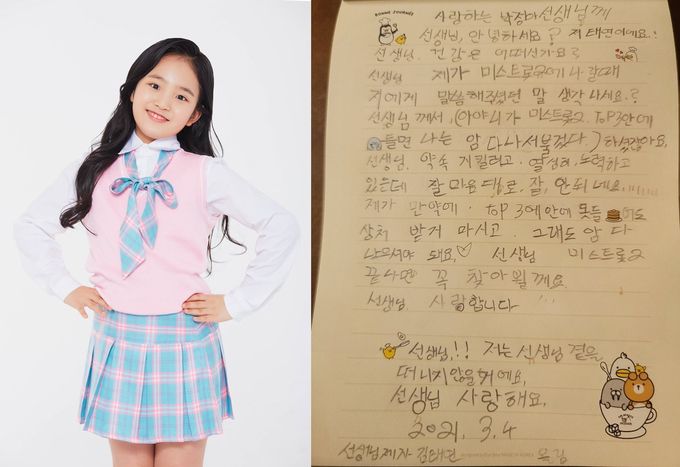 BONNE JOURNÉE
사랑하는 박정아선생님께
선생님, 안녕하세요? 저 태연이에요.!
선생님. 건강은 어떠신가요?
선생님 제가 미스트롯2에 나갈때
저에게 말씀해주셨던 말 생각나세요?
선생님께서, (아야 니가 미스트롯2. TOP3안에
들면 나는 암 다 나서불겄다.) 하셨잖아요.
선생님. 약속 지킬려고. 열심히. 노력하고
있는데 잘 마음대로, 잘, 안되네요.
제가 만약에. TOP 3에 안에 못들
상처 받거 마시고. 그래도 암 다
나으셔야 돼요.♡ 선생님 미스트롯2
끝나면 꼭 찾아뵐께요.
선생님. 사랑합니다
선생님.!! 저는 선생님 곁을
떠나지않을거에요.
선생님 사랑해요.
2021. 3.4
선생님제자 김태연 올림